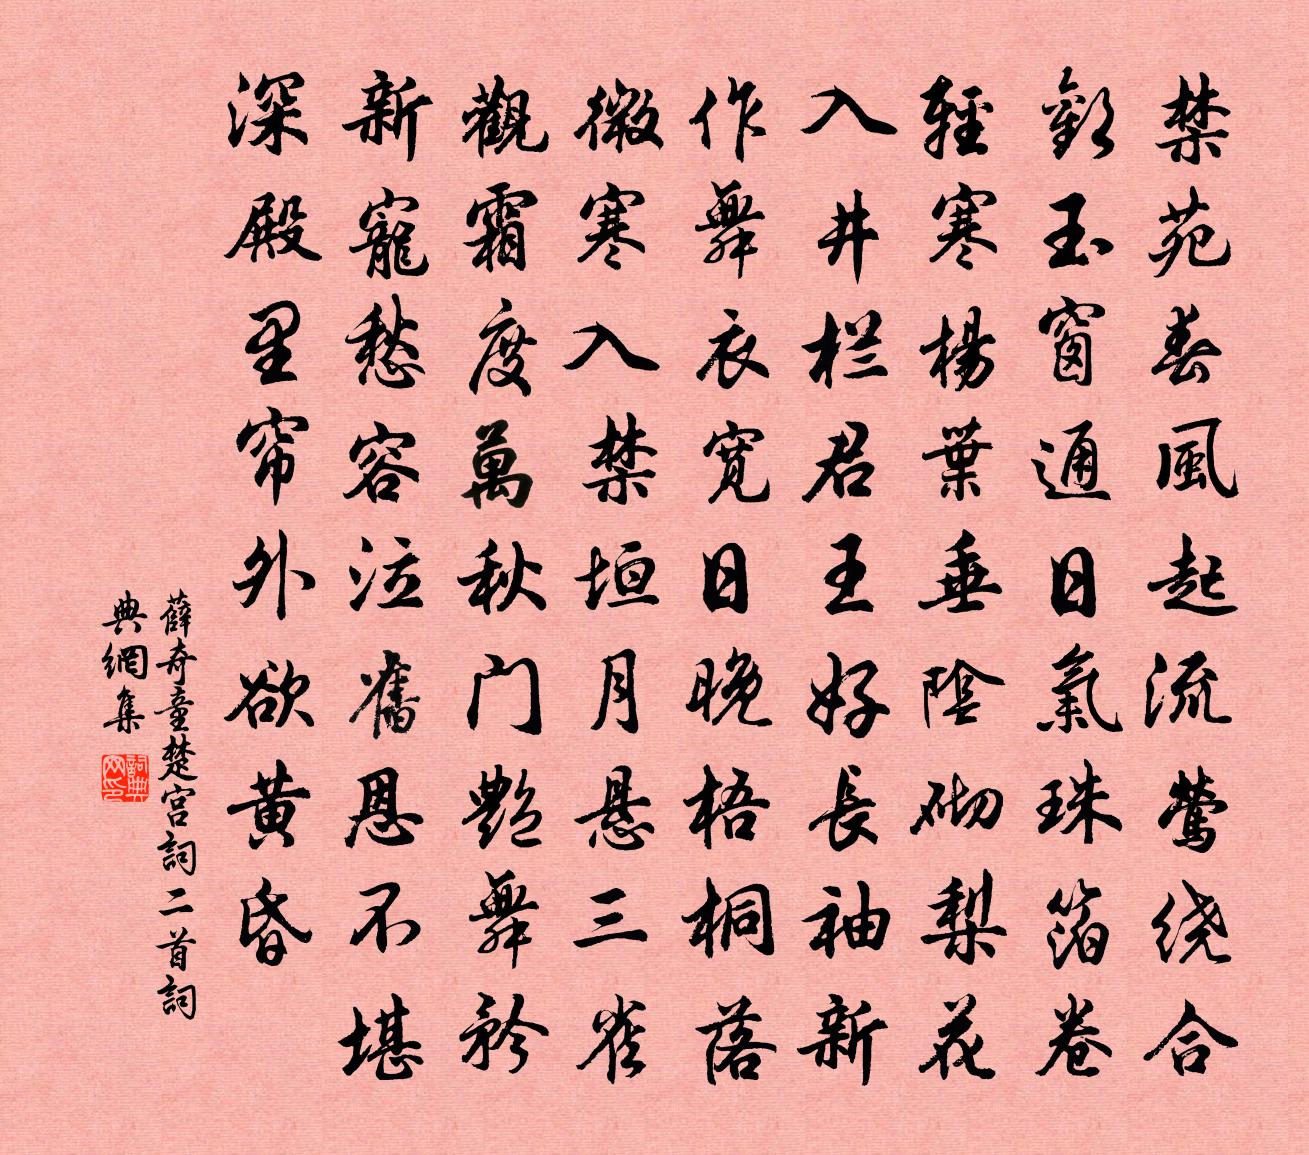 禁苑春風起流鶯绕合
歡玉窗通日氣珠箔卷
輕寒楊葉垂陰砌梨花
入井栏君王好長袖新
作舞衣宽日晚梧桐落
微寒入禁垣月悬三雀
觀霜度萬秋门艷舞矜
新寵愁容泣舊恩不堪
深殿里帘外欲黄昏
薛奇童楚宫詞二首詞
典網集
詞典网印